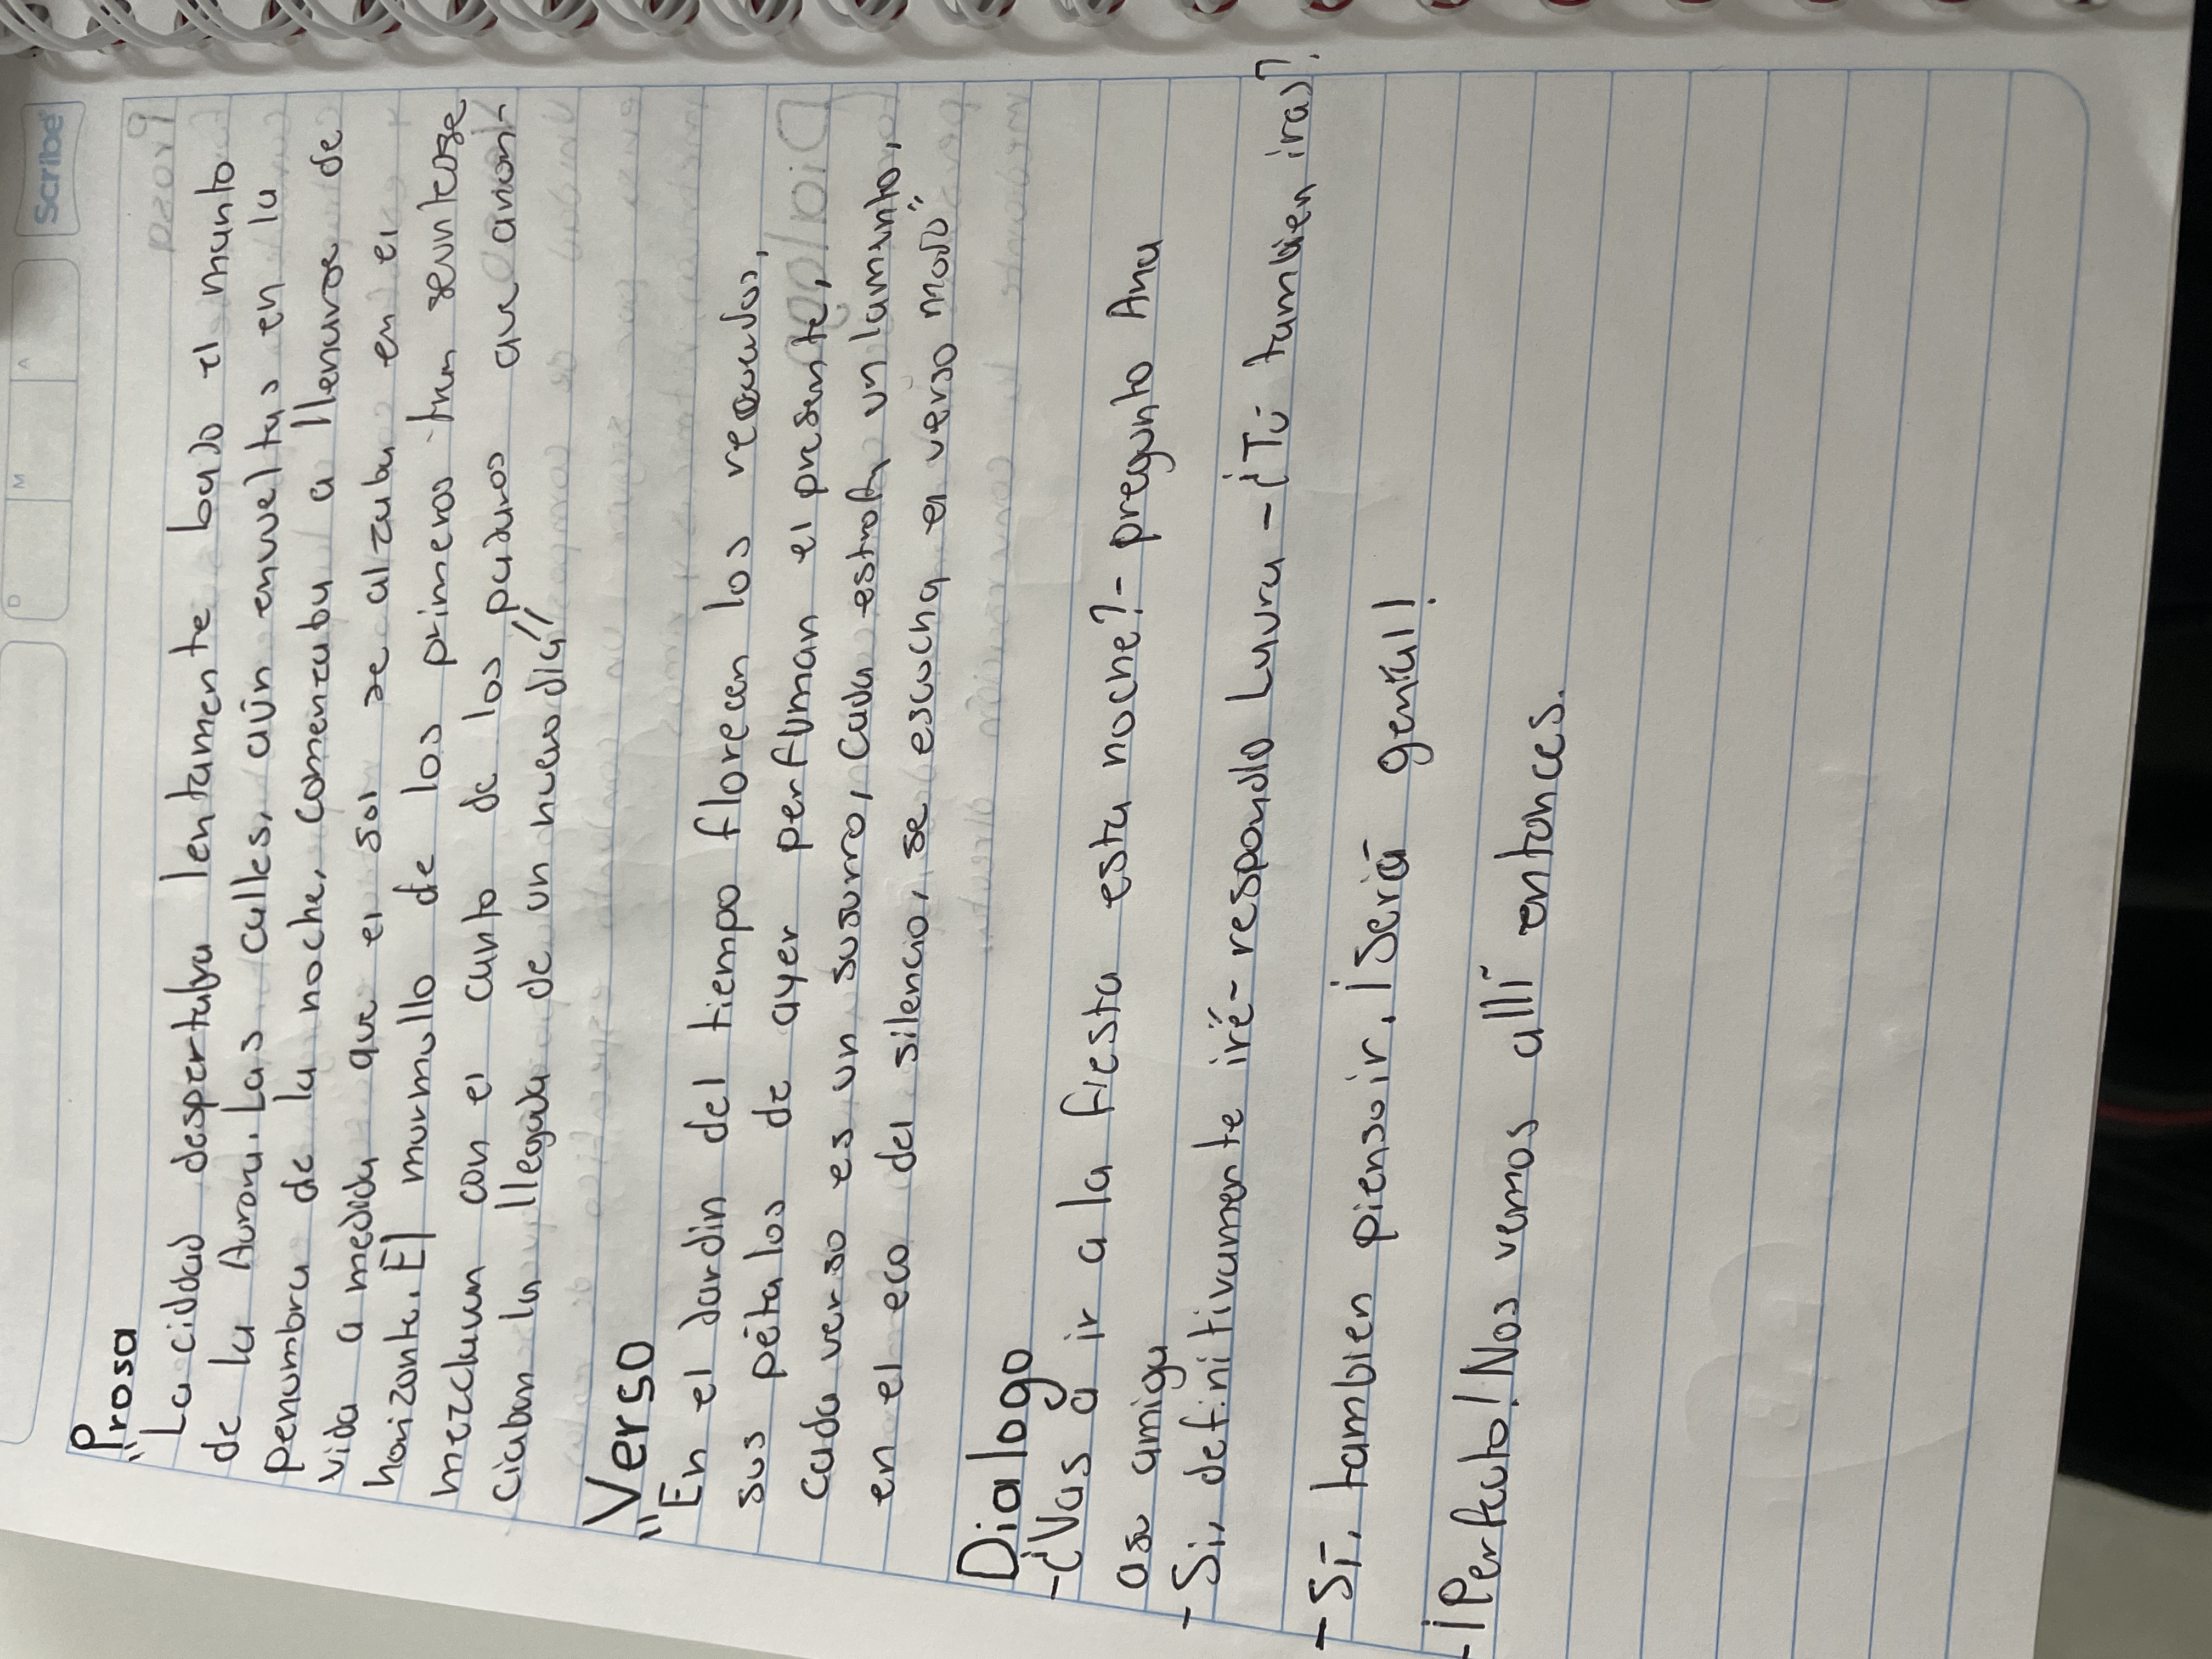 Scribe
D M A
Prosa
"La cidad despertaba lentamente bajo el manto
de la Aurora. Las calles, aún envueltas en la
penumbra de la noche, comenzaba a llenarse de
vida a medida que el sol se alzaba en el
horizonte. El murmullo de los primeros tran seuntesse
mezclaban con el canto de los pajaros que anun-
ciaban la llegada de un nuevo día"
Verso
"En el Jardin del tiempo florecen los recuerdos,
sus pétalos de ayer perfuman el presente,
cada verso es un susurro, cada estrofa un lamento,
en el eco del silencio, se escucha el verso mado"
Dialogo
-¿Vas a ir a la fiesta esta noche?- pregunto Ana
asu amiga
-Si, definitivamente iré- respondio Laura -¿Tú tambien iras?.
-Sí, tambien piensoir. ¡Seriá genial!
-¡Perfecto! Nos vemos allí entonces.